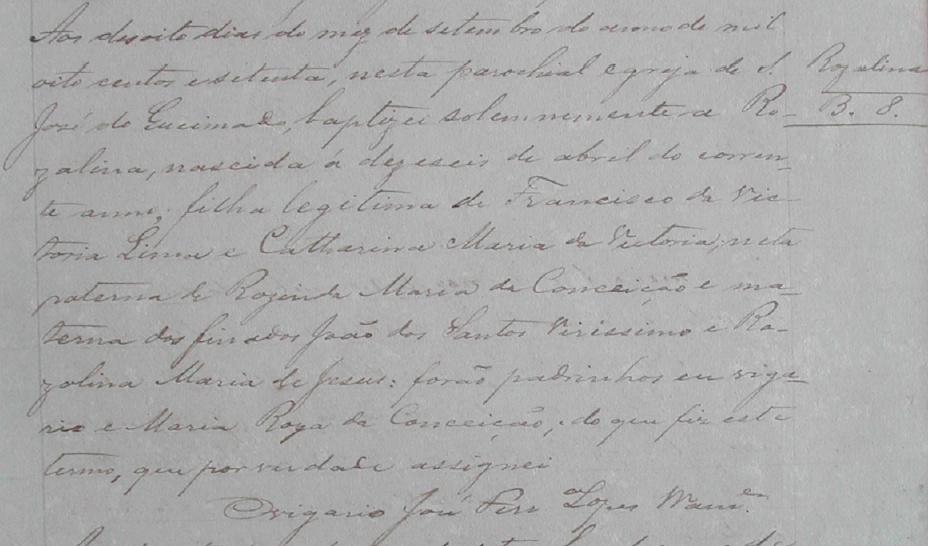 Aos desoito dias do mez de setembro do anno de mil
oito centos e setenta, nesta parochial egreja de S.
Rozalina
José do Queimado, baptizei solemnemente a Ro-
B. 8.
zalina, nascida á dezeseis de abril do corren-
te anno; filha legitima de Francisco da Vic-
toria Lima e Catharina Maria da Victoria; neta
paterna de Rozinda Maria da Conceição e ma-
terna dos finados João dos Santos Virissimo e Ro-
zolina Maria de Jesus: forão padrinhos eu viga-
rio e Maria Roza da Conceição, do que fiz este
termo, que por verdade assignei
O vigario José Ferr Lopes